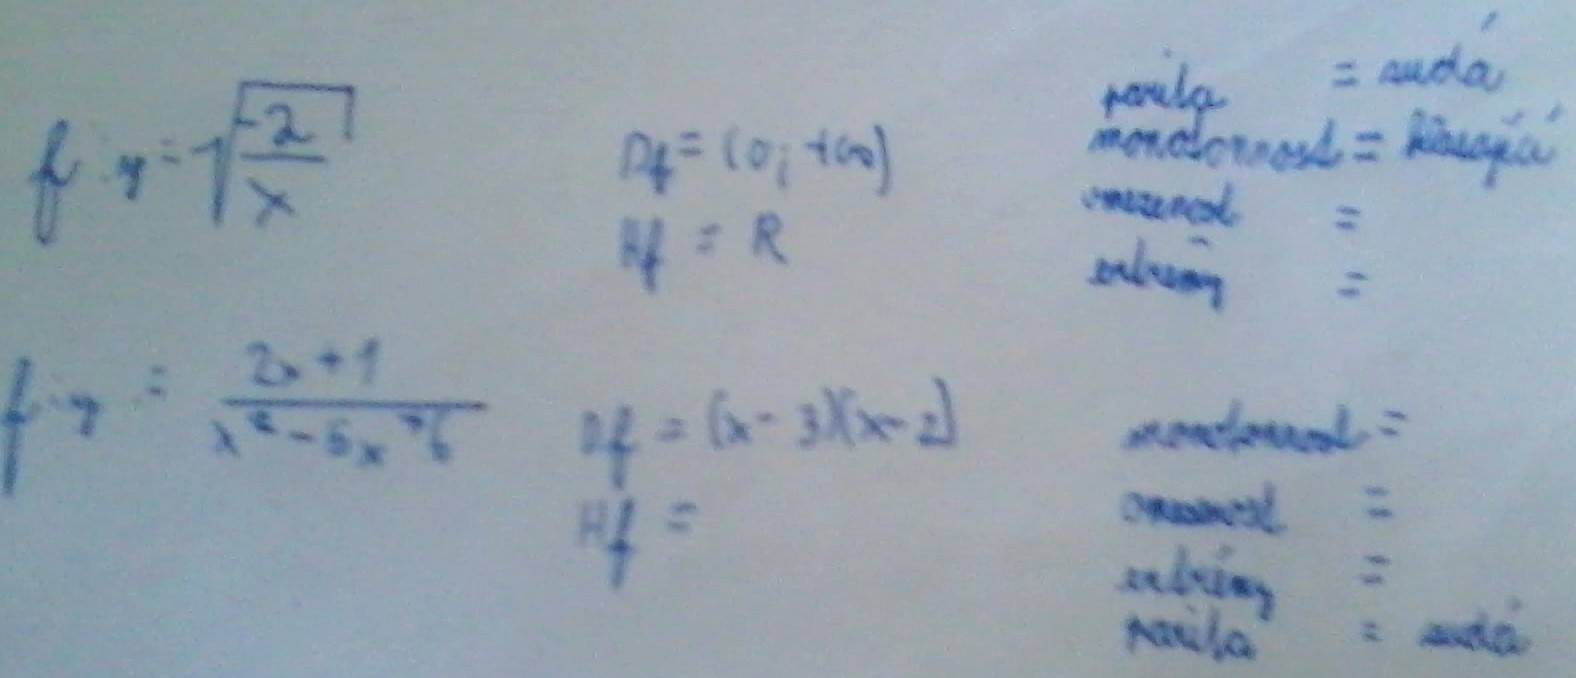 f: y = √(-2/x)
Df = (0; +∞)
Hf = R
parita = sudá
monotonnost = klesající
omezenost =
extrémy =
f: y = (2x + 1)/(x² - 5x + 6)
Df = (x - 3)(x - 2)
Hf =
monotonnost =
omezenost =
extrémy =
parita = sudá